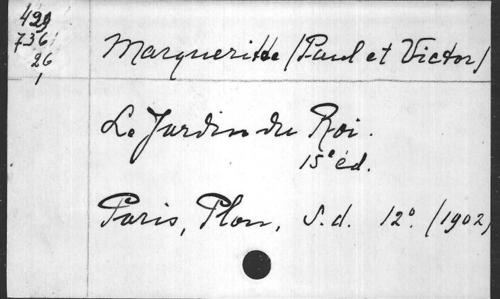 429
736
26
1
Margueritte (Paul et Victor)
Le Jardin du Roi.
15e éd.
Paris, Plon, S.d. 12o. (1902)